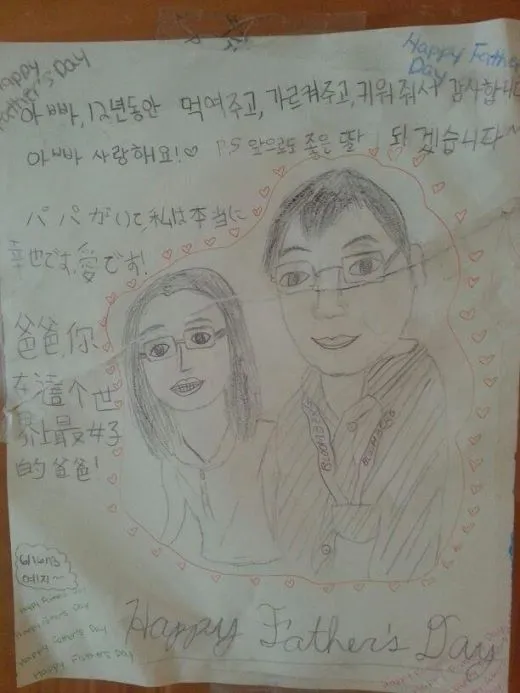 Happy
Father's Day
Happy Father
Day
아빠, 12년동안 먹여주고, 가르켜주고, 키워줘서 감사합니다
아빠 사랑해요!♡ P.S 앞으로도 좋은 딸 되겠습니다~
パパがいて私は本当に
幸也です,愛です!
爸爸,你
在這个世
界上最好
的爸爸!
BLOOMBERG
BLOOMBERG
6/16/13
예지~
Happy Father's Day
Happy Father's Day
Happy Father's Day
Happy Father's Day
Happy Father's Day